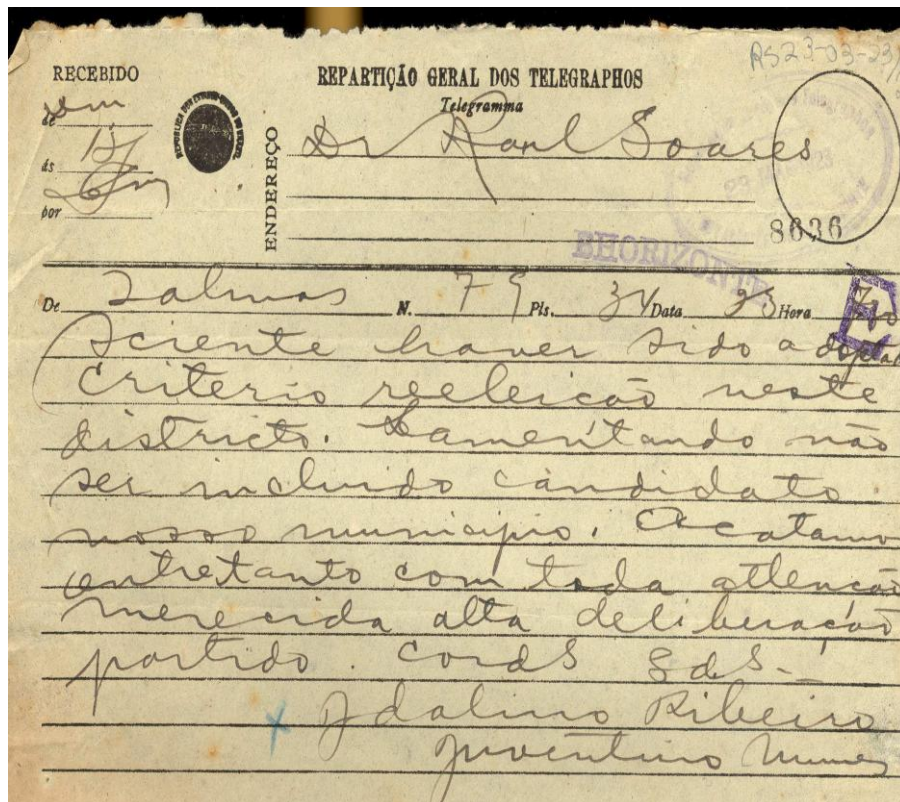 RS23-03-23/
RECEBIDO
REPARTIÇÃO GERAL DOS TELEGRAPHOS
Telegramma
de
ás 17
por
ENDEREÇO
Dr Raul Soares
8636
BHORIZONTE
De Salinas N. 79 Pls. 34 Data 23 Hora
Sciente haver sido adoptado
criterio reeleição neste
districto. Lamentando não
ser incluido candidato
nosso municipio. Acatamos
entretanto com toda attenção
merecida alta deliberação
partido. Cords Sds_
x Idalino Ribeiro
Juventino Nunes